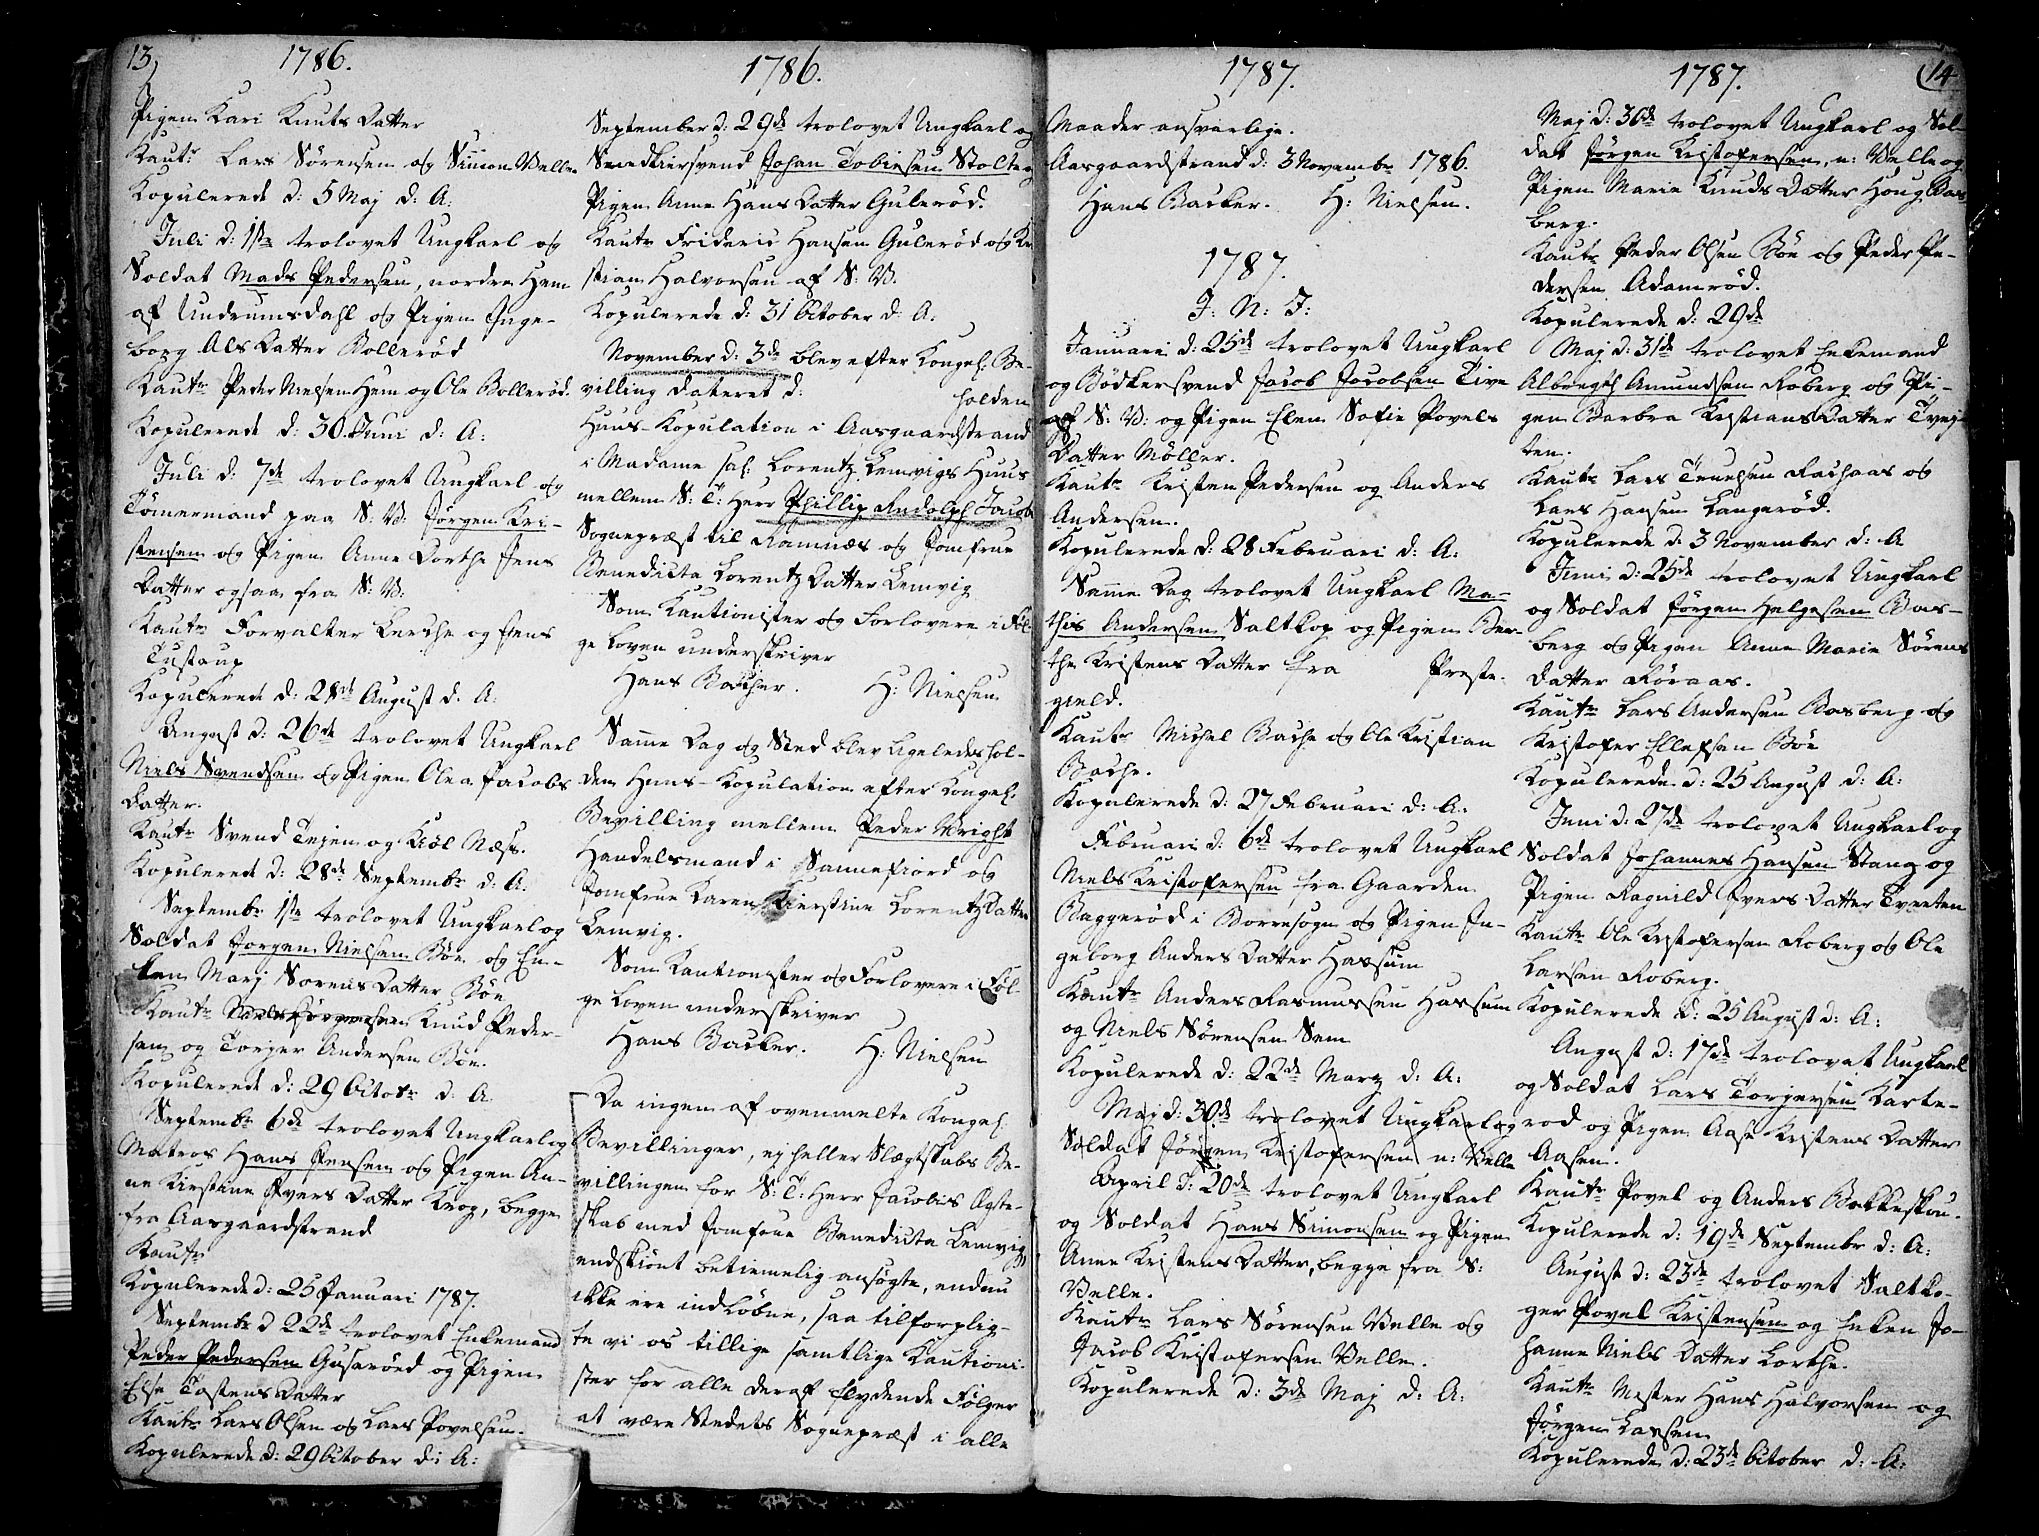 13,
1786.
Pigen Kari Knuts Datter
Kautr Lars Sørensen og Simon Velle.
Kopulerede d: 5 Maj d: A:
Juli d: 1ste trolovet Ungkarl og
Soldat Mads Pedersen, nordre Hem
af Undrumsdahl og Pigen Inge-
borg Als Datter Bollerød
Kautr Peder Nielsen Hem og Ole Bollerød.
Kopulerede d: 30 Juni d: A:
Juli d: 7de trolovet Ungkarl og
Tømermand paa S: V: Jørgen Kri-
stensen og Pigen Anne Dorthe Jens
Datter ogsaa fra S: V:
Kautr Forvalter Lerche og Jens
Tustrup
Kopulerede d: 28de August d. A:
August d: 26de trolovet Ungkarl
Niels Svendsen og Pigen Olea Jacobs
Datter.
Kautr Svend Teien og Kiøl Næss.
Kopulered d: 28de Septembr d: A:
Septembr 1ste trolovet Ungkarl og
Soldat Jorgen Nielsen Bøe og En-
ken Marj Sørens Datter Bøe
Kautr Niels Jørgensen Knud Peder-
sen og Torger Andersen Bøe.
Kopulerede d: 29 Octobr d: A:
Septembr 6de trolovet Ungkarl og
Matros Hans Jensen og Pigen An-
ne Kirstine Ivers Datter Krog, begge
fra Aasgaardstrand
Kautr
Kopulerede d: 25 Januari 1787.
Septembr d 22de trolovet Enkemand
Peder Pedersen Gusarøed og Pigen
Else Tostens Datter
Kautr Lars Olsen og Lars Povelsen.
Kopulerede d: 29 October d: A:
1786.
September d: 29de trolovet Ungkarl og
Smedkiersvend Johan Tobiesen Stolten
Pigen Anne Hans Datter Gulerød.
Kautr Frideric Hansen Gulerød og Kri
stian Halvorsen af S: V.
Kopulerede d: 31 October d: A:
November d: 3de blev efter Kongel: Be-
villing dateret d: holden
Huus-Kopulation i Aasgaardstrand
i Madame sal: Lorentz Lemvigs Huus
mellem S: T: Herr Phillip Rudolph Jacobi
Sognepræst til Ramnæs og Jomfrue
Benedicta Lorentz Datter Lemvig
Som Kautionister og Forlovere i Føl
ge Loven underskriver
Hans Bacher. H: Nielsen
Samme Dag og Sted blev ligeledes hol-
den Huus-Kopulation efter Kongel:
Bevilling mellem Peder Wright
Handelsmand i Sannefiord og
Jomfrue Karen Kierstine Lorentz Datter
Lemvig.
Som Kautionister og Forlovere i Føl-
ge Loven underskriver
Hans Backer. H: Nielsen
Da ingen af ovenmelte Kongel:
Bevillinger, ej heller Slægtskabs Be-
villingen for S: T: Herr Jacobis Ægte-
skab med Jomfrue Benedicta Lemvig,
endskiønt betiemelig ansøgte, endnu
ikke ere indløbne, saa tilforplig-
te vi os tillige samtlige Kautioni-
ster for alle deraf flydende Følger
at være Stedets Sognepræst i alle
1787.
Maader ansvarlige.
Aasgaardstrand d: 3 Novembr 1786.
Hans Backer. H: Nielsen.
1787.
J: N: J:
Januari d: 25de trolovet Ungkarl
og Bødkersvend Jacob Jacobsen Tive
af S: V: og Pigen Elen Sofie Povels
Datter Møller.
Kautr Kristen Pedersen og Anders
Andersen.
Kopulerede d: 28 Februari d: A:
Samme Dag trolovet Ungkarl Ma-
this Andersen Saltkop og Pigen Ber-
the Kristens Datter fra Preste-
gield.
Kautr Michel Bache og Ole Kristian
Bache.
Kopulerede d: 27 Februari d: A:
Februari d: 6de trolovet Ungkarl
Niels Kristofersen fra Gaarden
Baggerød i Borresogn og Pigen In-
geborg Anders Datter Hassum
Kautr Anders Rasmussen Hassum
og Niels Sørensen Sem
Kopulerede d: 22de Marz d: A:
Maj d: 30de trolovet Ungkarl og
Soldat Jørgen Kristofersen n: Velle
April d: 20de trolovet Ungkarl
og Soldat Hans Simonsen og Pigen
Anne Kristens Datter, begge fra S:
Velle.
Kautr Lars Sørensen Velle og
Jacob Kristofersen Velle.
Kopulerede d: 3de Maj d: A:
1787.
14
Maj d: 30de trolovet Ungkarl og Sol-
dat Jørgen Kristofersen, n: Velle og
Pigen Maria Knuds Datter Houg Bas
berg.
Kautr Peder Olsen Bøe og Peder Pe-
dersen Adamrød.
Kopulerede d: 29de
Maj d: 31de trolovet Enkemand
Albregth Amundsen Roberg og Pi-
gen Barbra Kristians Datter Tvej-
ten.
Kautr Lars Tenelsen Rachaas og
Lars Hansen Langerød.
Kopulerede d: 3 November d: A
Juni d: 25de trolovet Ungkarl
og Soldat Jørgen Helgesen Bas-
berg og Pigen Anne Marie Sørens
Datter Røraas.
Kautr Lars Andersen Basberg og
Kristofer Ellefsen Bøe
Kopulerede d: 25 August d: A:
Juni d: 27de trolovet Ungkarl og
Soldat Johannes Hansen Stang og
Pigen Ragnild Ivers Datter Tveeten
Kautr Ole Kristofersen Roberg og Ole
Larsen Roberg.
Kopulerede d: 25 August d: A:
August d: 17de trolovet Ungkarl
og Soldat Lars Torgersen Karte-
rod og Pigen Aase Kristens Datter
Aasen.
Kautr Povel og Anders Bakkeskou.
Kopulerede d: 19de Septembr d: A:
August d: 23de trolovet Saltko-
ger Povel Kristensen og Enken Jo-
hanne Niels Datter Lorthe.
Kautr Mester Hans Halvorsen og
Jørgen Larsen
Kopulerede d: 23de October d: A: